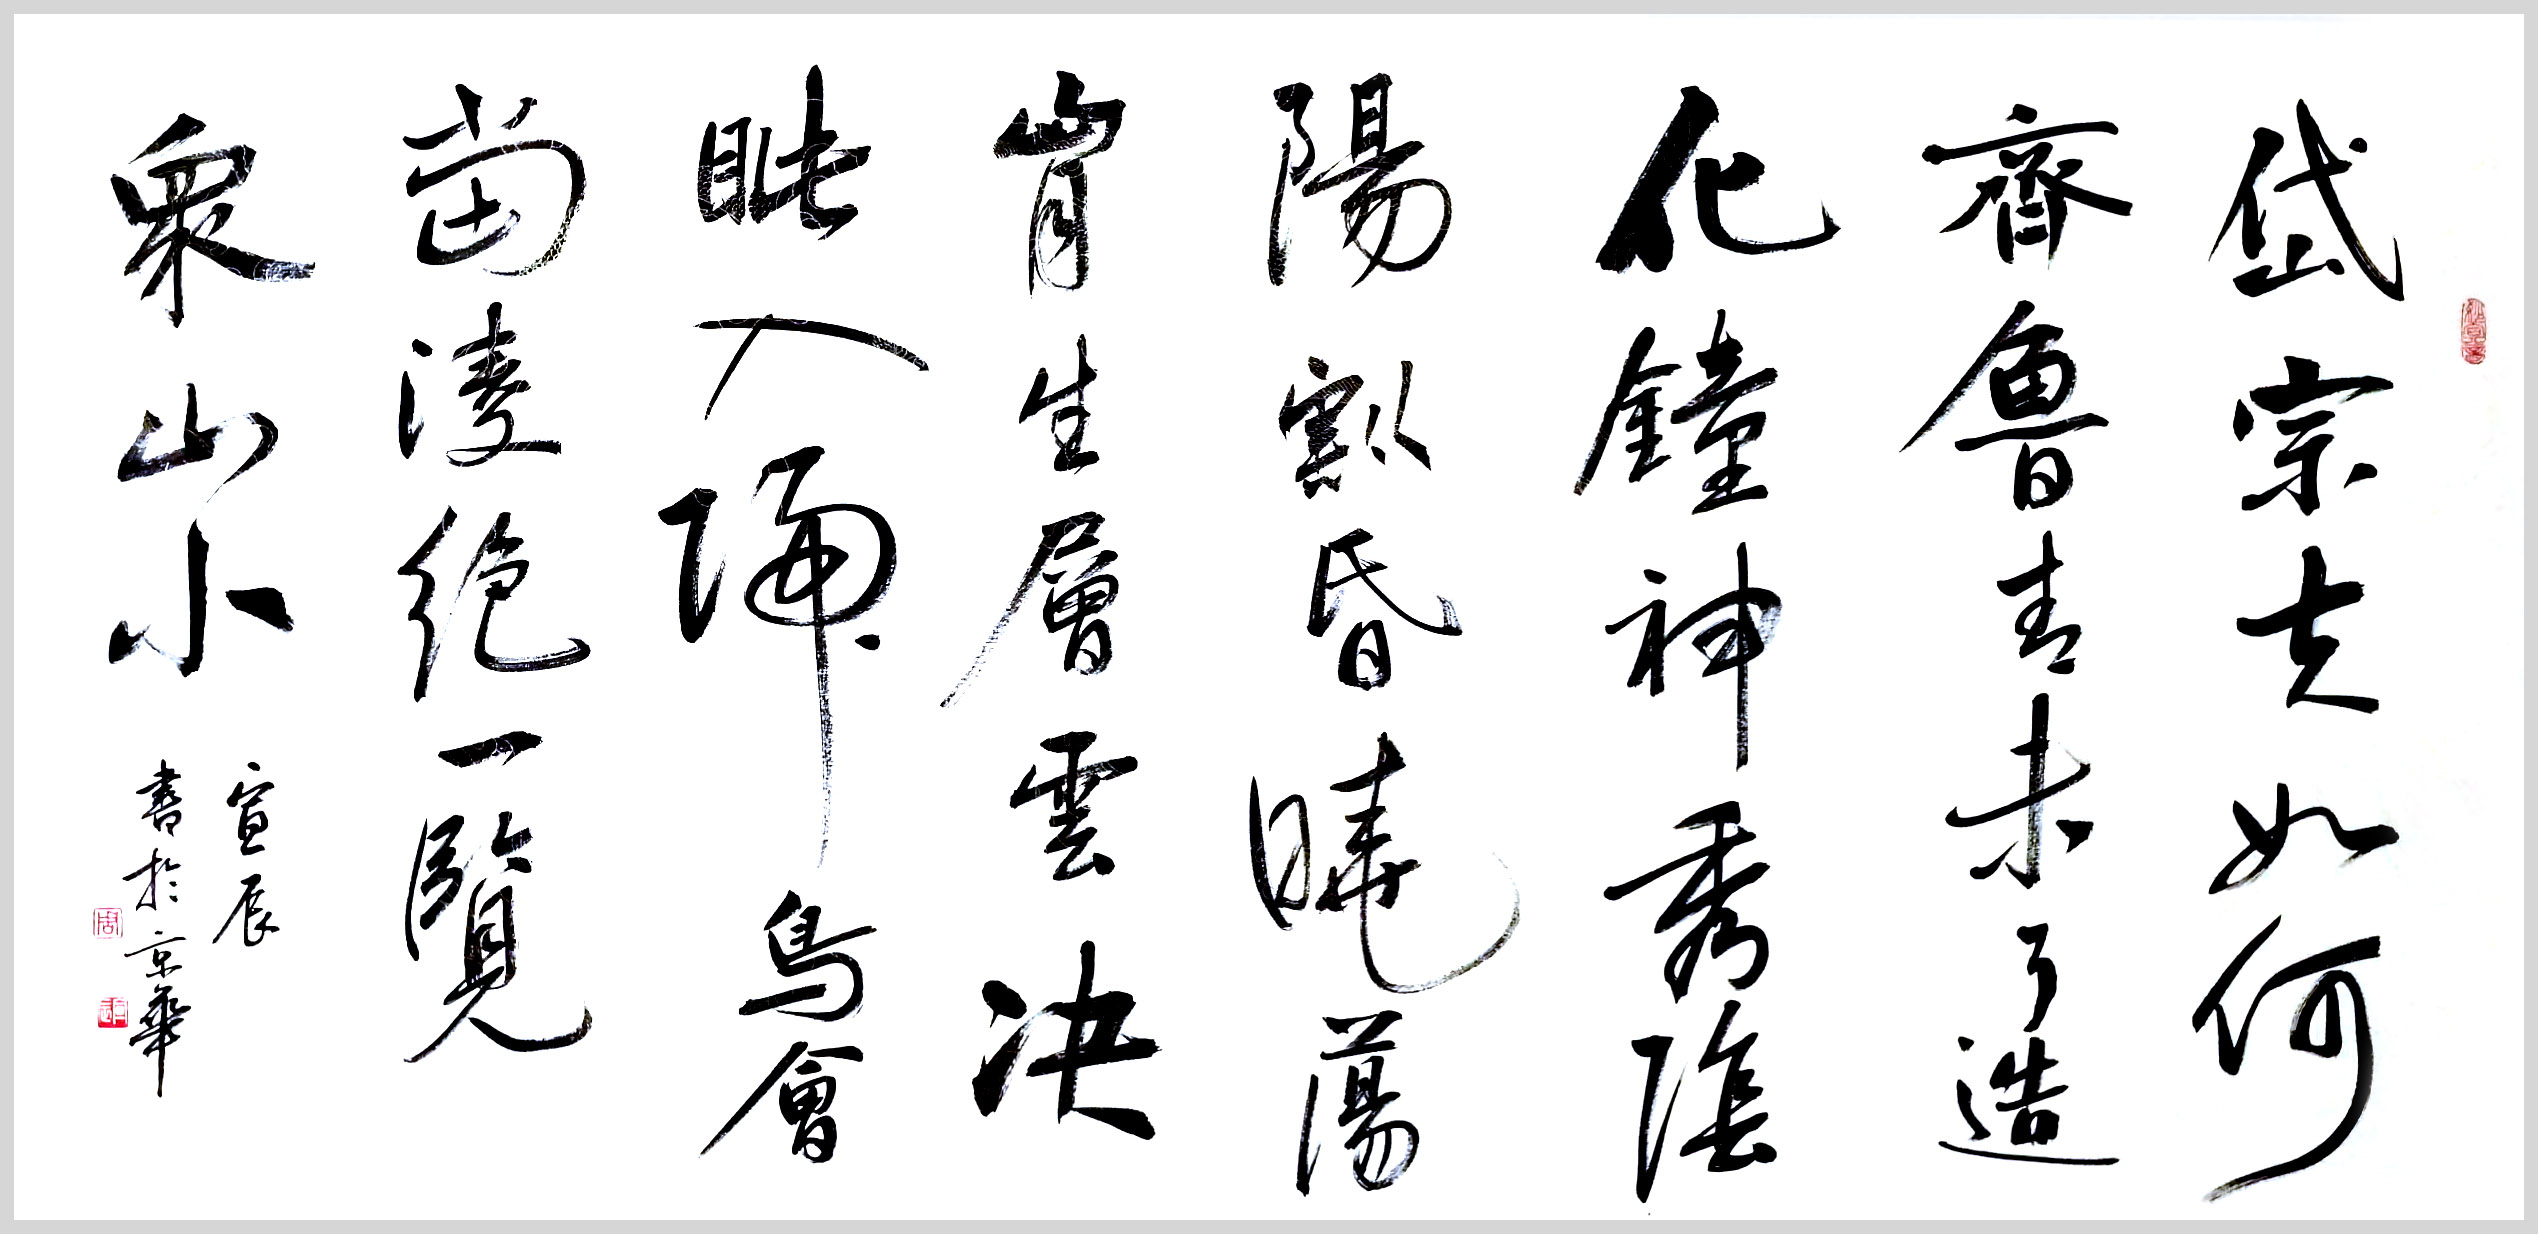 岱宗夫如何
齊魯青未了造
化鐘神秀陰
陽割昏曉蕩
胷生層雲决
眦入歸鳥會
當凌絕一覽
眾山小
宣辰
書於京華